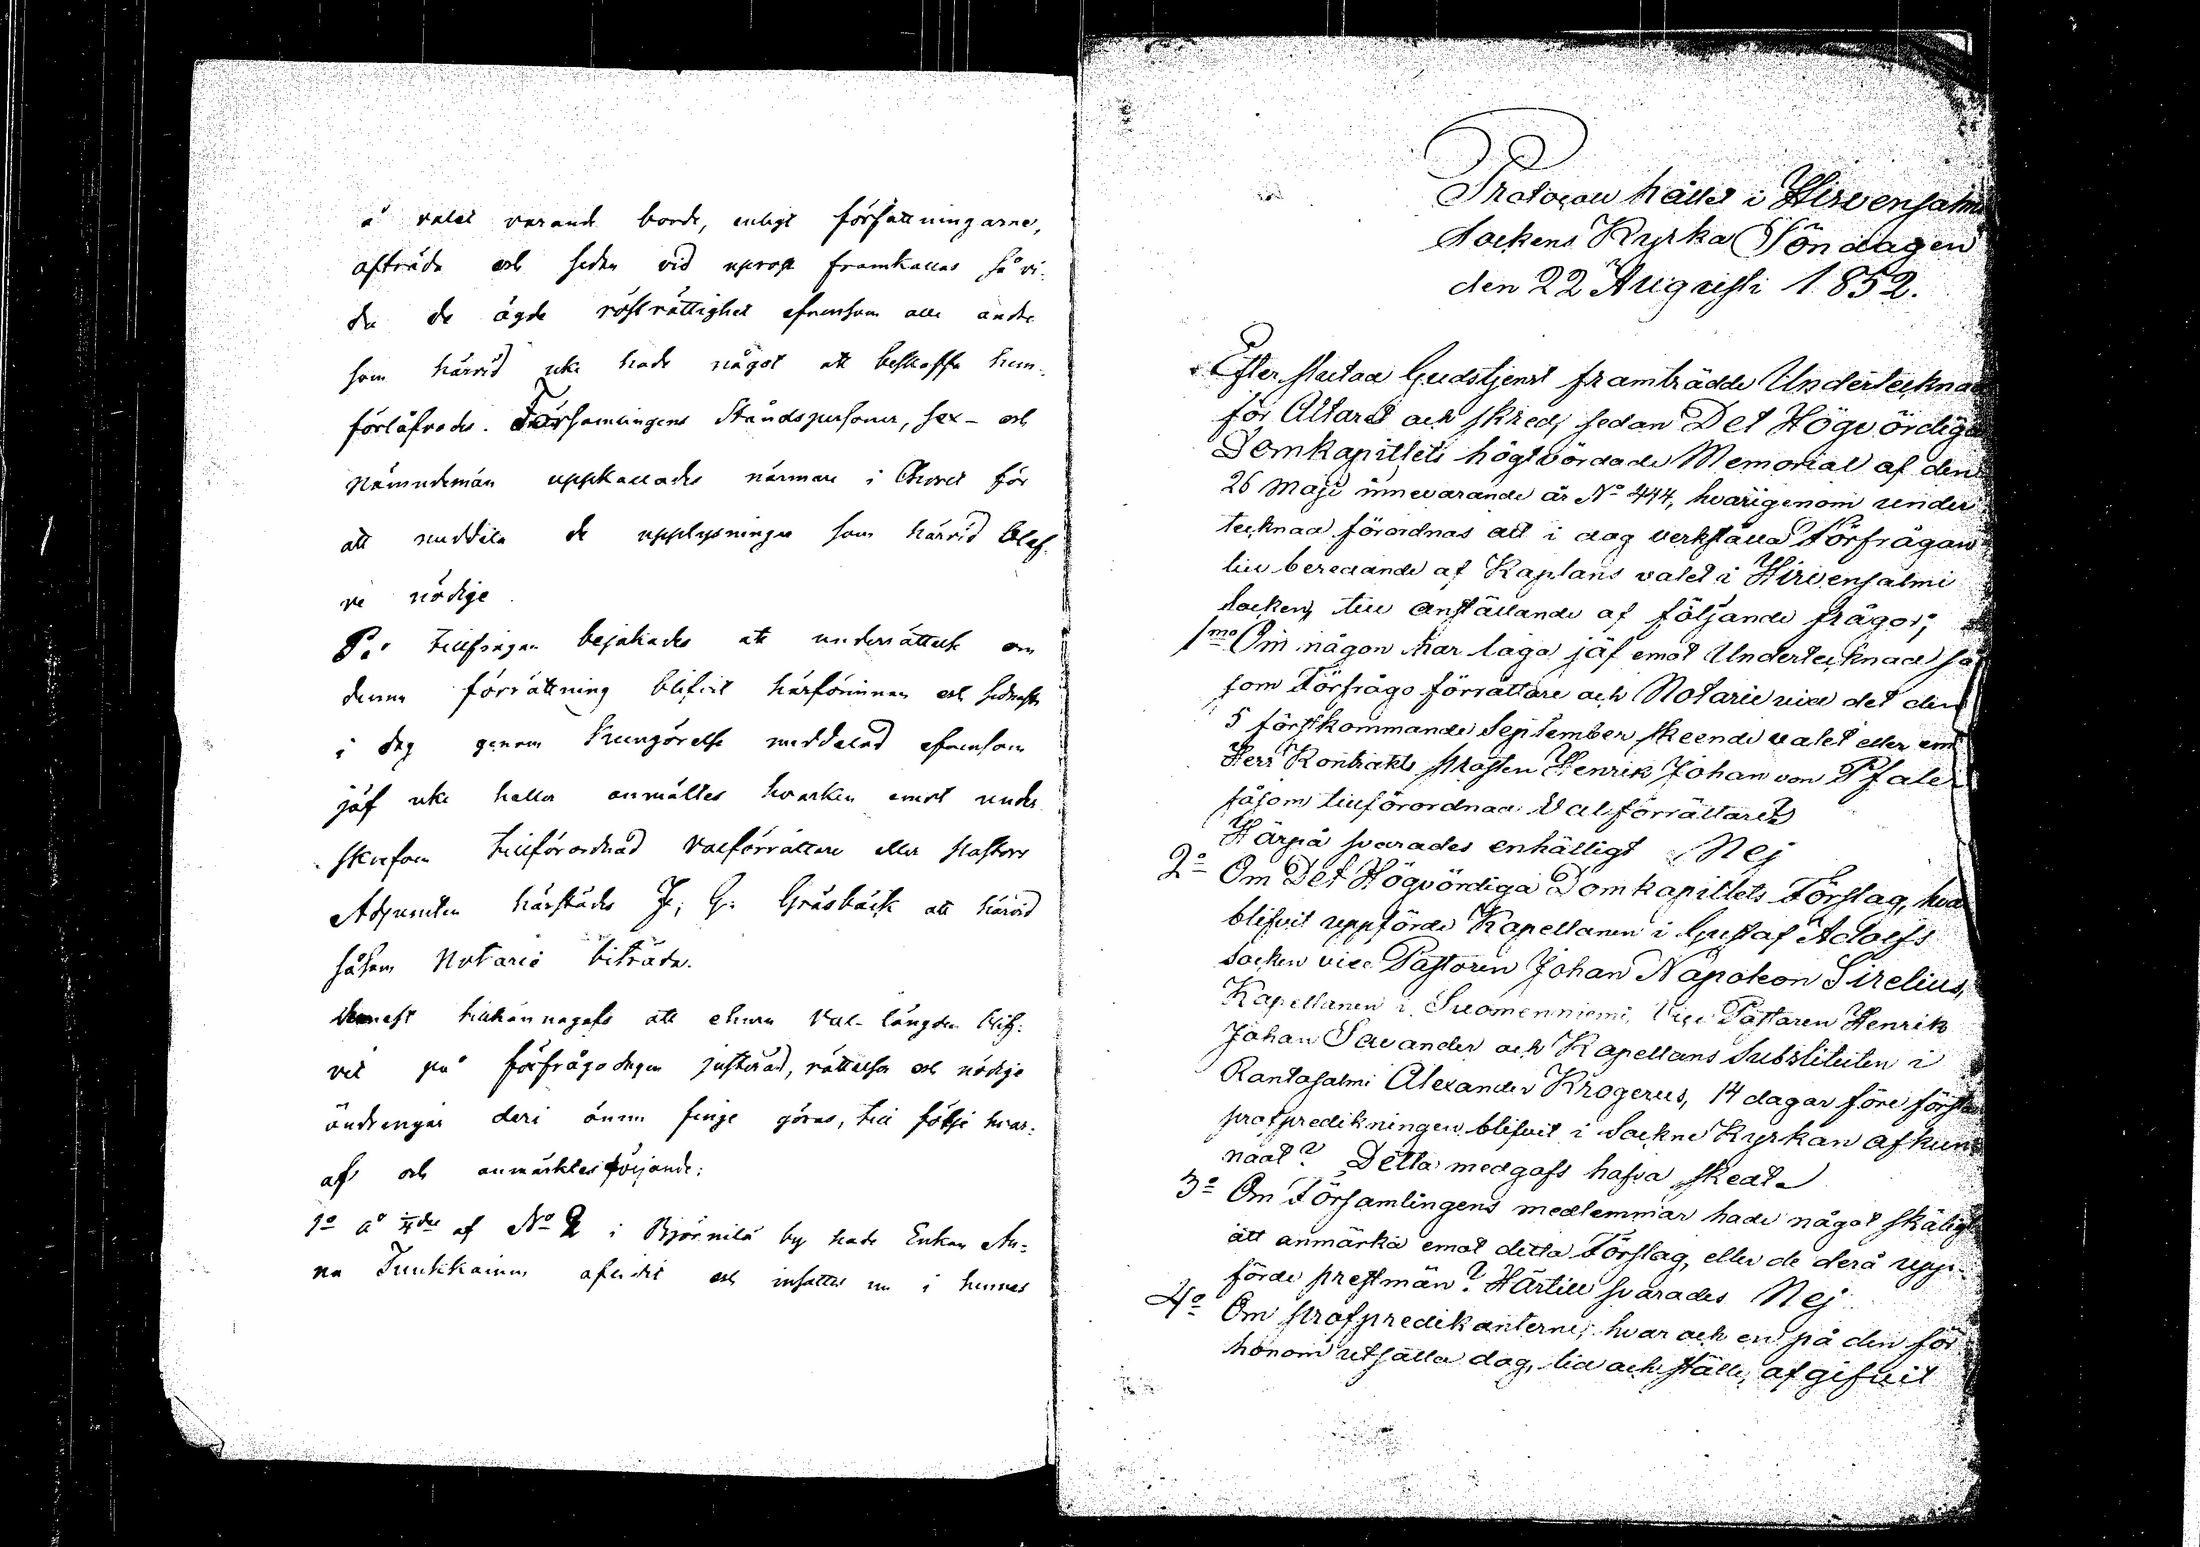 å valet varande borde, enligt författningarne,
afträda och sedan vid uprop framkallas så vi-
da de ägde rösträttighet äfvensom alle andre
som härvid icke hade något att beskaffa hem-
förlåfvades. Församlingens Ståndspersoner, sex- och
nämndemän uppkallades närmare i Choret för
att meddela de upplysningar som härvid blef-
ve nödige.
På tillfrågan bejakades att underrättelse om
denna förrättning blifvit härförinnan och sednast
i dag genom Kungörelse meddelad äfvensom
jäf icke heller anmältes hvarken emot under
skrefven tillförordnad Valförrättare eller Pastors
Adjuncten härstädes J. G. Gråsbäck att härvid
såsom Notarie biträda.
Dernäst tillkännagafs att ehuru Val-längden blif-
vit på förfrågodagen justerad, rättelser och nödige
ändringar deri ännu finge göras, till följe hvar-
af och anmärktes följande:
1o å af No 2 i Björnilä by hade Enkan An-
na Tuukkainen aflidit och insattes nu i hennes
Protocoll hållet i Hirvensalmi
Sockens Kyrka Söndagen
den 22 Augusti 1852.
Efter slutad Gudstjenst framträdde Undertecknad
för Altaret och skred, sedan Det Högvördiga
Domkapitlets högtvördade Memorial af den
26 Maji innevarande år No 444, hvarigenom under
tecknad förordnas att i dag verkställa Förfrågan
till beredande af Kaplans valet i Hirvensalmi
Socken, till anställande af följande frågor;
1mo Om någon har laga jäf emot Undertecknad så
som Förfrågo förrättare och Notarie vid det den
5 förstkommande September skeende valet eller emot
Herr Kontrakts Prosten Henrik Johan von Pfaler
såsom tillförordnad Valförrättare?
Härpå svarades enhälligt Nej
2o Om Det Högvördiga Domkapitlets Förslag, hvar
blifvit uppförde Kapellanen i Gustaf Adolfs
Socken vice Pastoren Johan Napoleon Sirelius,
Kapellanen i Suomenniemi, Vice Pastoren Henrik
Johan Savander och Kapellans Substituten i
Rantasalmi Alexander Krogerus, 14 dagar före första
profpredikningen blifvit i Sockne Kyrkan afkun-
nadt? Detta medgafs hafva skedt.
3o Om Församlingens medlemmar hade något skäligt
att anmärka emot detta Förslag, eller de derå upp-
förde prestmän? Härtill svarades Nej
4o Om profpredikanterne, hvar och en på den för
honom utsatta dag, tid och ställe, afgifvit